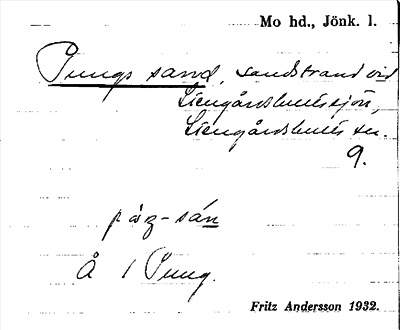 Mo hd., Jönk. l.
Pungs sand, sandstrand vid
Stengårdshultssjön,
Stengårdshults sn.
9.
páz-sán
Å 1 Pung.
Fritz Andersson 1932.